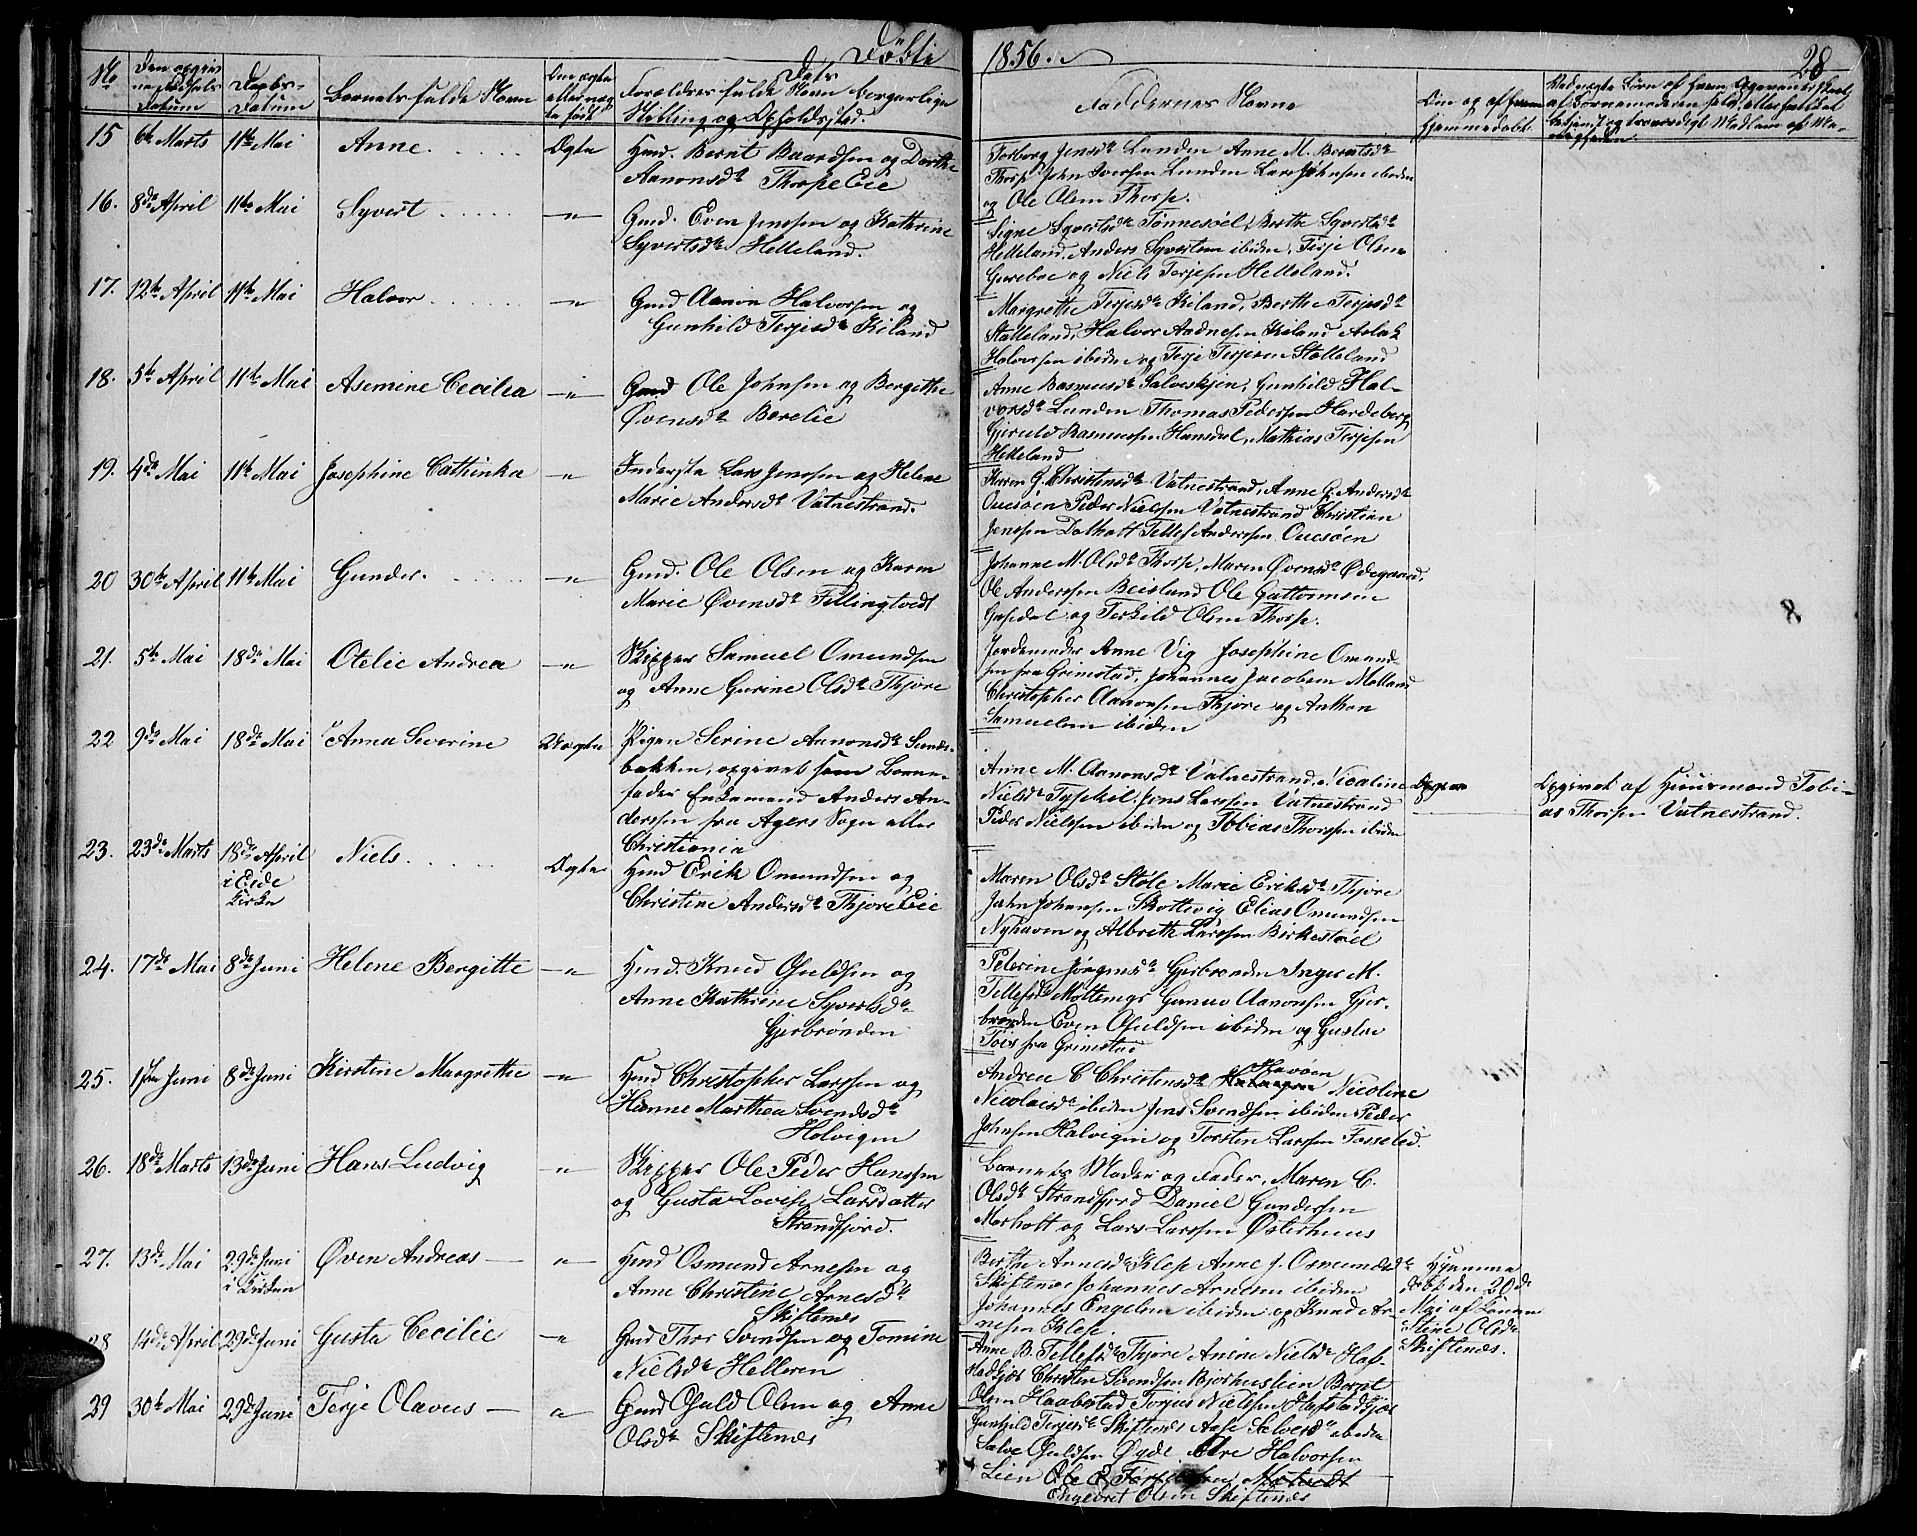 Döbte 1856. 28
No
Den opgivne Fødsels Datum
Daabs-Datum
Barnets fulde Navn
Om ægte eller uægte født
Forældres fulde Navn borgerlige Stilling og Opholdssted.
Faddernes Navne
Om og af hvem hjemmedøbt
15 6te Marts 11te Mai Anne Ægte
Huusmd. Bernt Baardsen og Dorthe
Aanonsdtr Thorpe Eie
Torborg Jensdtr Lunden Anne M. Berntsdtr
Thorp John Iversen Lunden Lars Johnsen ibiden
og Ole Olsen Thorp.
16. 8de April 11te Mai Syvert — " —
Gmd. Even Jenssen og Kathrine
Syvertsdtr Helleland.
Signe Syvertsdtr Tønnesøl, Berthe Syvertsdtr
Helleland, Anders Syvertsen ibiden, Terje Olsen
Gurebo og Niels Terjesen Helleland.
17. 12te April 11te Mai Halvor — " —
Gmd Aanon Halvorsen og
Gunhild Terjesdtr Kiland
Margrethe Terjesdtr Kiland, Berthe Terjesdtr
Stalleland, Halvor Aadnesen Kiland Aslak
Halvorsen ibiden og Terje Terjesen Stalleland
18. 5te April 11te Mai Asemine Cecilia — " —
Gmd Ole Johnsen og Bergithe
Øvensdtr Borelie
Anne Rasmusdtr Salveskjen, Gunhild Hal-
vorsdtr Lunden Thomas Pedersen Hardeberg
Gjeruld Rasmussen Hansdal, Mathias Terjesen
Helleland
19. 4de Mai 11te Mai Josephine Cathinka — " —
Inderste Lars Jenssen og Helene
Marie Andersdtr Vatnestrand.
Karen G. Christensdtr Vatnestrand, Anne G. Andersdtr
Ouesöen Peder Nielssen Vatnestrand Christian
Jenssen Dalholt Tellef Anderssen Ouesöen
20 30te April 11te Mai Gunder. — " —
Gmd. Ole Olsen og Karen
Marie Øvensdtr Fillingtvedt
Johanne M. Olsdtr Thorp, Maren Øvensdtr Ødegaard,
Ole Anderssen Beisland Ole Guttormsen
Gusedal og Terkild Olsen Thorp.
21. 5te Mai 18de Mai Otelie Andrea — " —
Skipper Samuel Omundsen
og Anne Gurine Olsdtr Thjore
Jordemoder Anne Vig Josephine Omund-
sen fra Grimstad, Johannes Jacobsen Molland
Christopher Aanonsen Thjore og Anthon
Samuelsen ibiden
22 9de Mai 18de Mai Anna Severine Uægte
Pigen Serine Aanonsdtr Sunds-
bakken, opgivet som Barne-
fader Enkemand Anders An-
derssen fra Agers Sogn eller
Christiania
Anne M. Aanonsdtr Vatnestrand, Nicoline
Nielsdtr Tyskel. Jens Larssen Vatnestrand
Peder Nielssen ibiden og Tobias Thorssen ibiden
Opgivet af Huusmand Tobi-
as Thorsen Vatnestrand.
23. 23de Marts 18de April i Eide Kirke Niels. Ægte
Hmd Erik Omundsen og
Christine Andersdtr Thjore Eie
Maren Olsdtr Støle Marie Eriksdtr Thjore
John Johansen Skottevig Elias Omundsen
Nyhaven og Albreth Larssen Birkestøl
24. 17de Mai 8de Juni Helene Bergitte — " —
Hmd. Knud Ouldsen og
Anne Kathrine Syvertsdtr
Gjerbrønden
Peterine Jørgensdtr Gjerbrønden Inger M.
Tellefsdtr Moltemyr Gunuv Aanonsen Gjer-
brønden Even Ouldsen ibiden og Gustav
Tois fra Grimstad
25. 1ste Juni 8de Juni Kirstine Margrethe — " —
Hmd Christopher Larssen og
Hanne Marthea Svendsdtr
Holvigen
Andrea C Christensdtr Havöen Nicoline
Nicolaisdtr ibiden Jens Svendsen ibiden Peder
Johnsen Halvigen og Torsten Larssen Fosselid.
26. 18de Marts 13de Juni Hans Ludvig "
Skipper Ole Peder Hanssen
og Gusta Lovise Larsdatter
Strandfjord.
Barnets Moder og Fader, Maren C.
Olsdtr Strandfjord Daniel Gundersen
Morholt og Lars Larssen Østerhuus
27. 13de Mai 29de Juni i Kirken Øven Andreas — "
Hmd Osmund Arnesen og
Anne Christine Arnesdtr
Skiftenæs
Berthe Arnesdtr Klep Anne J. Osmundsdtr
Skiftenæs Johannes Arnesen ibiden
Johannes Engelsen ibiden og Knud Ar-
nesen Klep.
Hjemme
døbt den 20de
Mai af Konen
Stine Olsdtr
Skiftenæs.
28 14de April 29de Juni Gusta Cecilie "
Gmd Thor Svendsen og Tomine
Nielsdtr Helleren
Anne B. Tellefsdtr Thjore Anine Nielsdtr Haf-
stadkjos Christen Svendsen Bjorhuslien Bernt
Olsen Haabestad Torjus Nielsen Hafstadkjos
29 30te Mai 29de Juni Terje Olavus — "
Gmd Ould Olsen og Anne
Olsdtr Skiftenæs
Gunhild Terjesdtr Skiftenæs Aase Salvesdtr ibiden
Salve Ouldsen Øyde Alve Halvorsen
Lien Ole
Engebret Olsen Skiftenæs